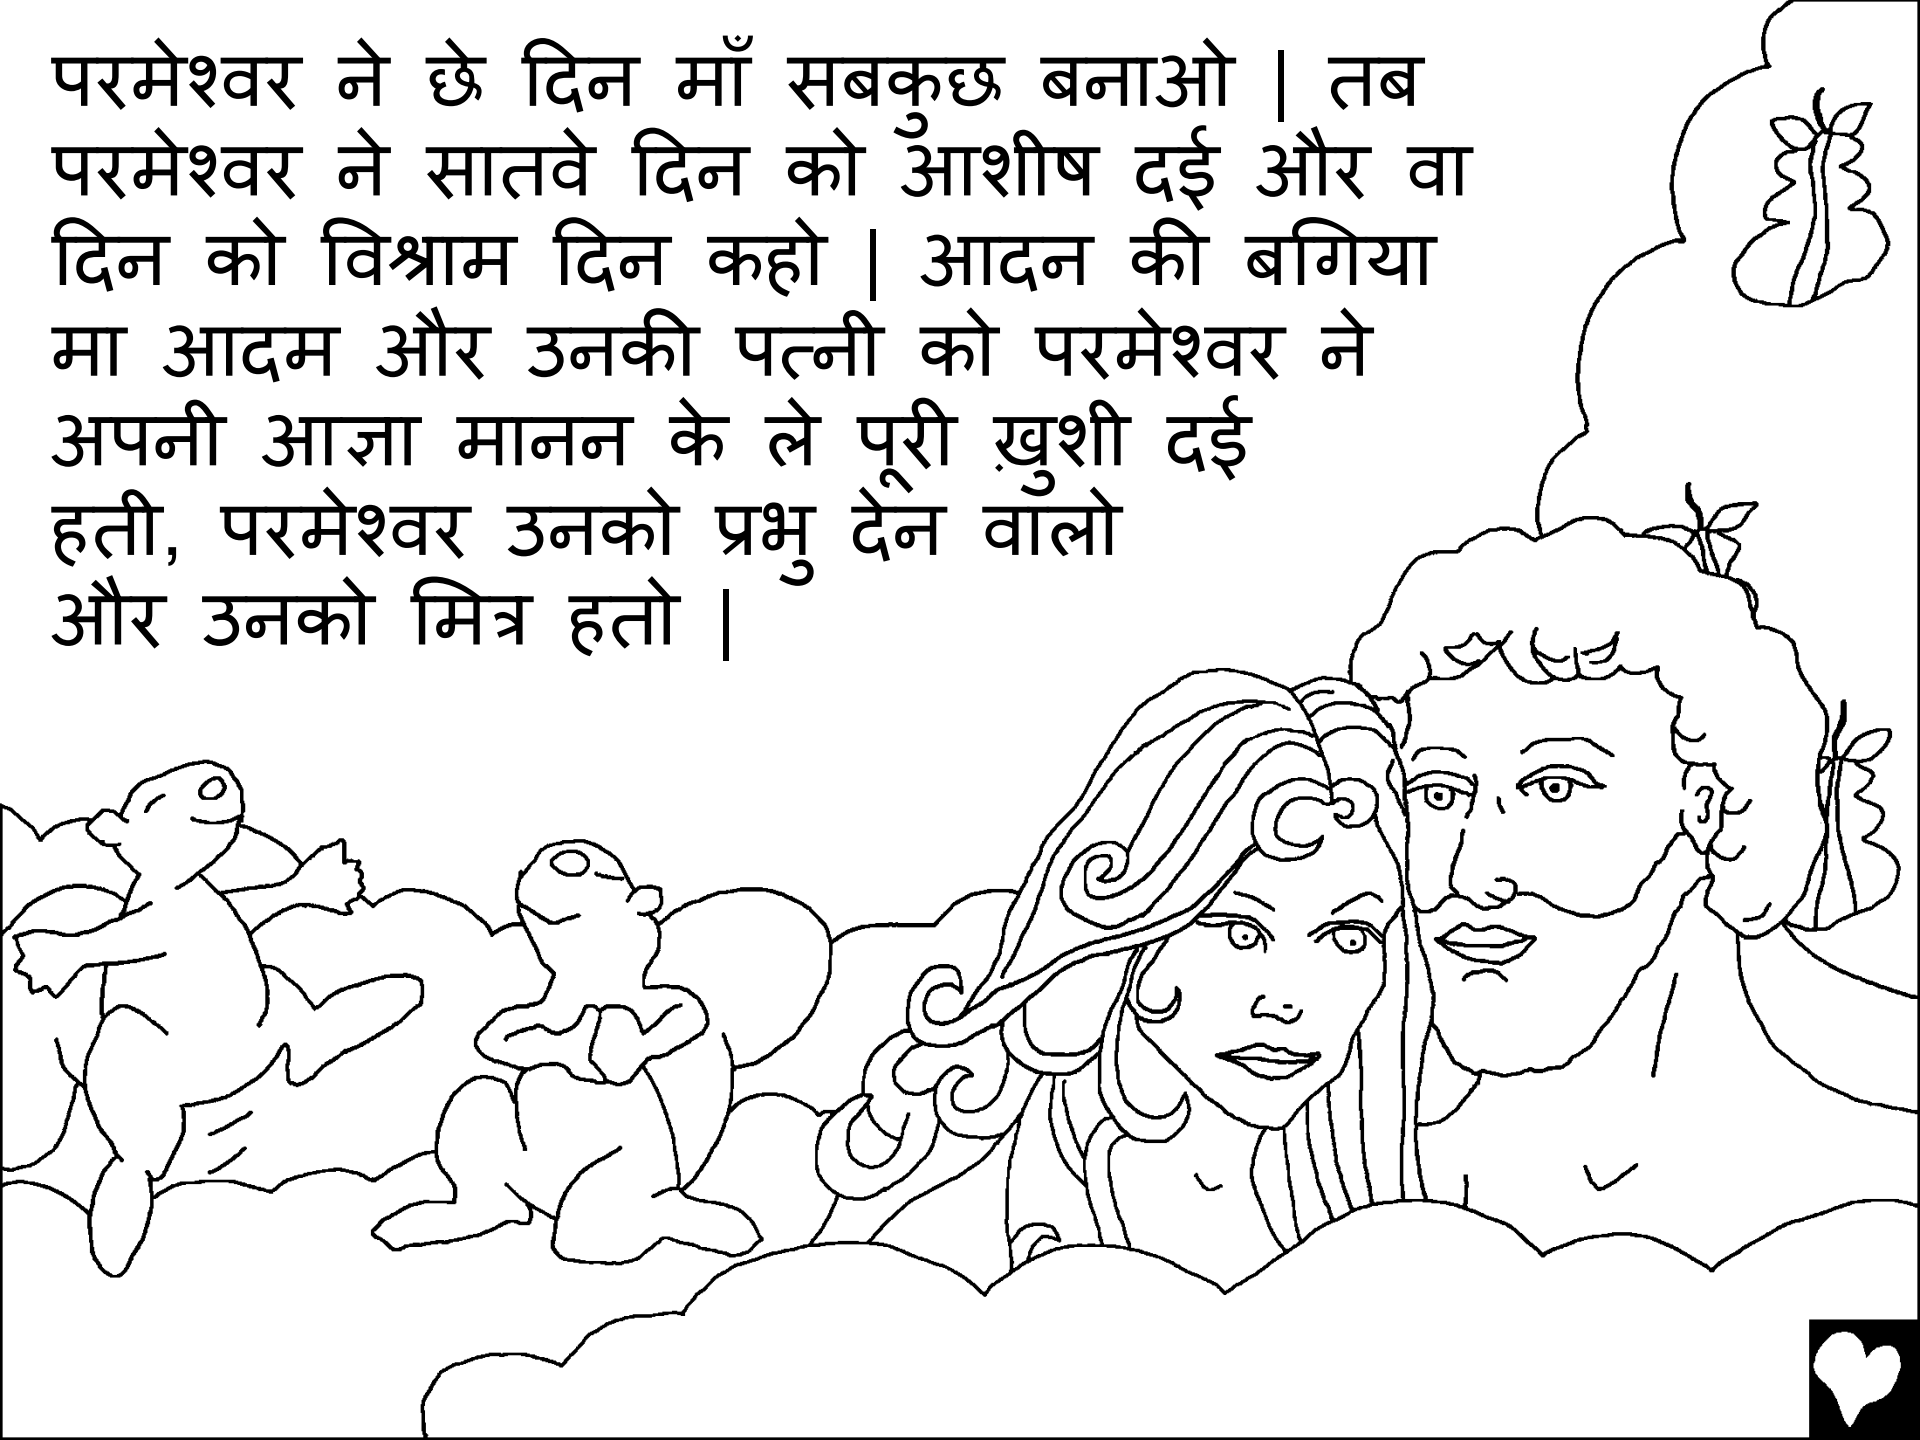 परमेश्वर ने छे दिन माँ सबकुछ बनाओ | तब
परमेश्वर ने सातवे दिन को आशीष दई और वा
दिन को विश्राम दिन कहो | आदन की बगिया
मा आदम और उनकी पत्नी को परमेश्वर ने
अपनी आज्ञा मानन के ले पूरी ख़ुशी दई
हती, परमेश्वर उनको प्रभु देन वालो
और उनको मित्र हतो |